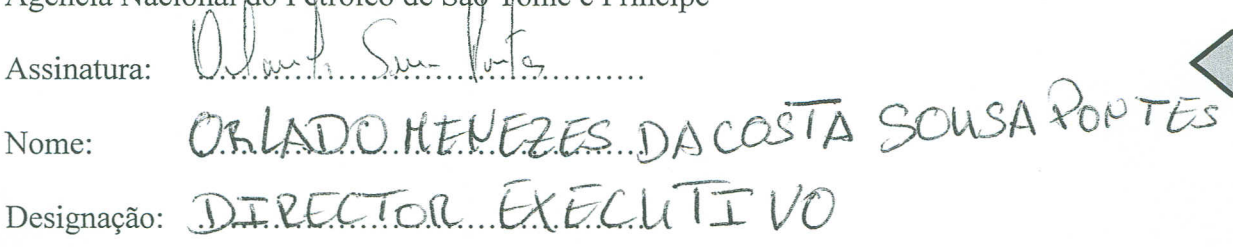 Agência Nacional do Petróleo de São Tomé e Príncipe
Assinatura:
Nome: ORLADO MENEZES DA COSTA SOUSA PONTES
Designação: DIRECTOR EXECUTIVO